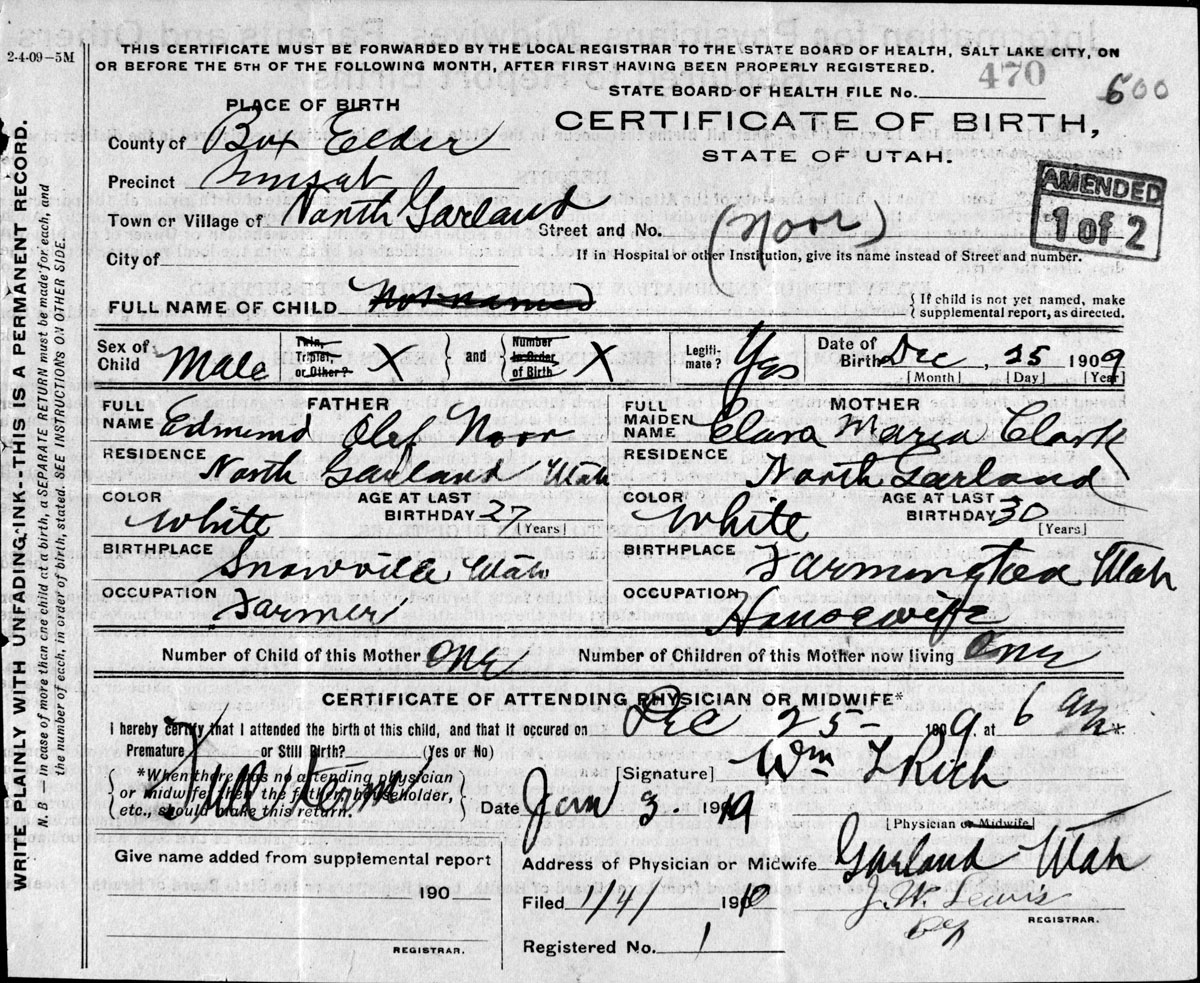 2-4-09-5M
THIS CERTIFICATE MUST BE FORWARDED BY THE LOCAL REGISTRAR TO THE STATE BOARD OF HEALTH, SALT LAKE CITY, ON
OR BEFORE THE 5TH OF THE FOLLOWING MONTH, AFTER FIRST HAVING BEEN PROPERLY REGISTERED.
470
STATE BOARD OF HEALTH FILE No.
600
PLACE OF BIRTH
CERTIFICATE OF BIRTH,
STATE OF UTAH.
County of Box Elder
Precinct
Town or Village of North Garland
Street and No.
(Noor)
AMENDED
1 of 2
City of
If in Hospital or other Institution, give its name instead of Street and number.
FULL NAME OF CHILD Not named
{If child is not yet named, make
supplemental report, as directed.
Sex of Child Male
Twin, Triplet, or Other? X } and { Number in Order of Birth X
Legitimate? Yes
Date of Birth Dec, 25 1909
[Month] [Day] [Year]
FATHER
FULL NAME Edmund Olef Noor
RESIDENCE North Garland Utah
COLOR White
AGE AT LAST BIRTHDAY 27 [Years]
BIRTHPLACE Snowville Utah
OCCUPATION Farmer
MOTHER
FULL MAIDEN NAME Clara Maria Clark
RESIDENCE North Garland
COLOR White
AGE AT LAST BIRTHDAY 30 [Years]
BIRTHPLACE Farmington Utah
OCCUPATION Housewife
Number of Child of this Mother One
Number of Children of this Mother now living One
CERTIFICATE OF ATTENDING PHYSICIAN OR MIDWIFE*
I hereby certify that I attended the birth of this child, and that it occured on Dec 25- 1909, at 6 am*.
Premature or Still Birth? (Yes or No)
Full term
{*When there was no attending physician
or midwife, then the father, householder,
etc., should make this return.}
[Signature] Wm L Rich
Date Jan 3. 1910
[Physician or Midwife]
Give name added from supplemental report
190
REGISTRAR.
Address of Physician or Midwife Garland Utah
Filed 1/4/ 1910
J. W. Lewis
Dep
REGISTRAR.
Registered No. 1
WRITE PLAINLY WITH UNFADING INK--THIS IS A PERMANENT RECORD.
N. B.—In case of more than one child at a birth, a SEPARATE RETURN must be made for each, and
the number of each, in order of birth, stated. SEE INSTRUCTIONS ON OTHER SIDE.